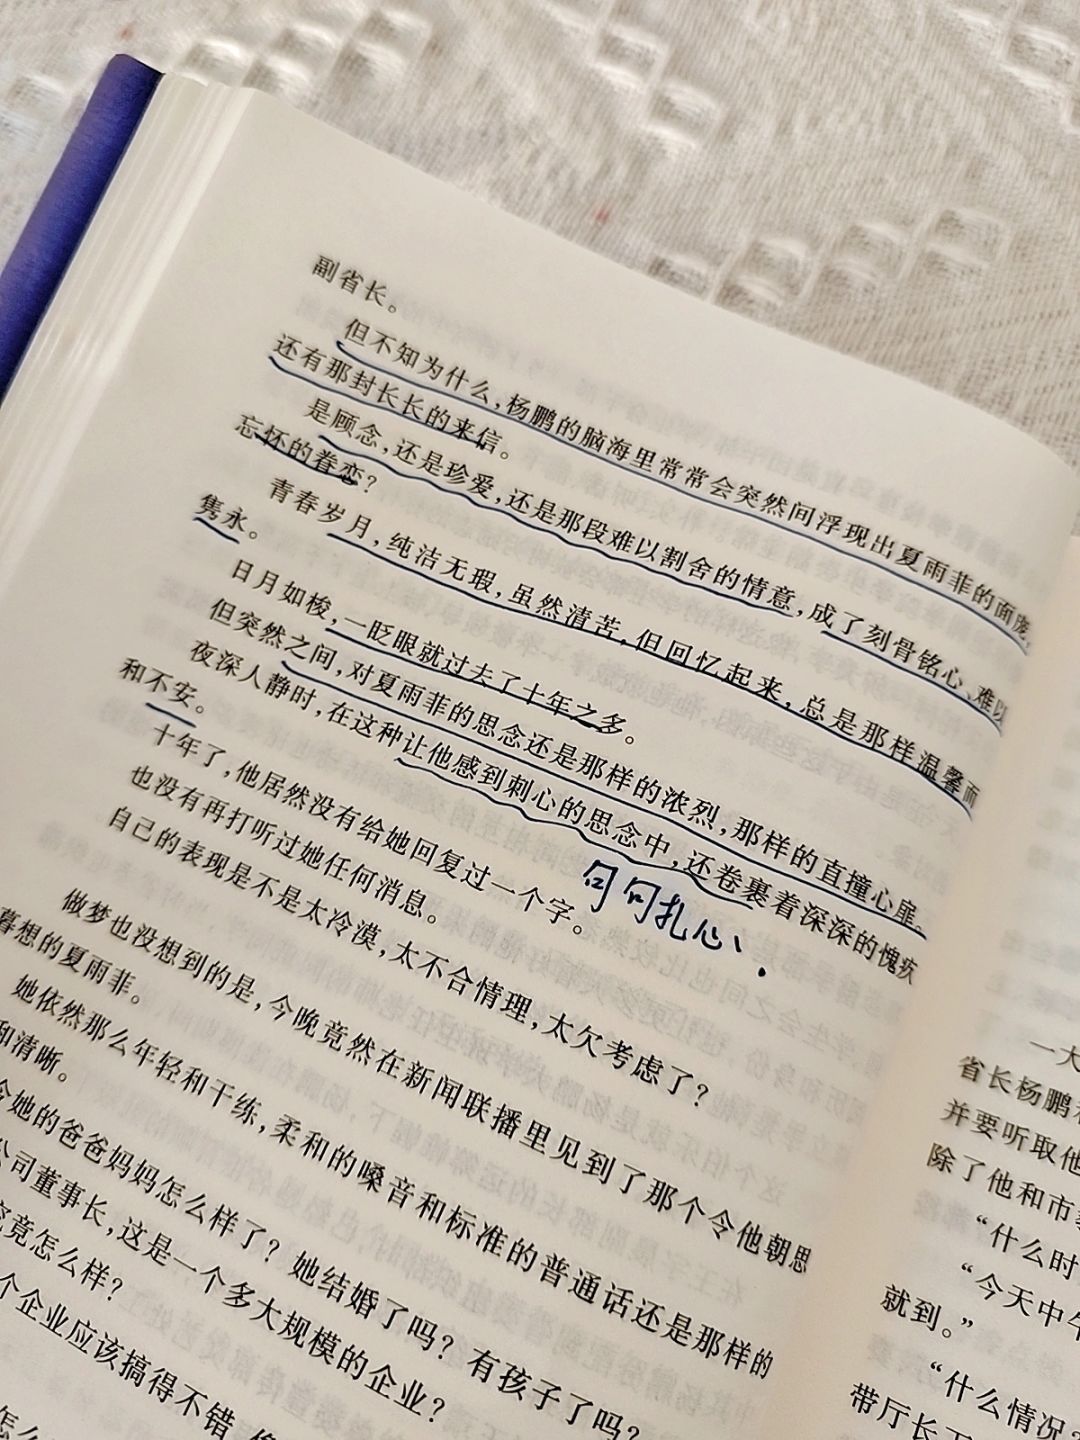 副省长。
但不知为什么，杨鹏的脑海里常常会突然间浮现出夏雨菲的面庞，
还有那封长长的来信。
是顾念，还是珍爱，还是那段难以割舍的情意，成了刻骨铭心、难以
忘怀的眷恋？
青春岁月，纯洁无瑕，虽然清苦，但回忆起来，总是那样温馨而
隽永。
日月如梭，一眨眼就过去了十年之多。
但突然之间，对夏雨菲的思念还是那样的浓烈，那样的直撞心扉。
夜深人静时，在这种让他感到刺心的思念中，还卷裹着深深的愧疚
和不安。
句句扎心、.
十年了，他居然没有给她回复过一个字。
也没有再打听过她任何消息。
自己的表现是不是太冷漠，太不合情理，太欠考虑了？
做梦也没想到的是，今晚竟然在新闻联播里见到了那个令他朝思
暮想的夏雨菲。
她依然那么年轻和干练，柔和的嗓音和标准的普通话还是那样的
和清晰。
她的爸爸妈妈怎么样了？她结婚了吗？有孩子了吗？
公司董事长，这是一个多大规模的企业？
究竟怎么样？
个企业应该搞得不错，
怎么
一大
省长杨鹏
并要听取他
除了他和市
“什么时
“今天中午
就到。”
“什么情况？
带厅长